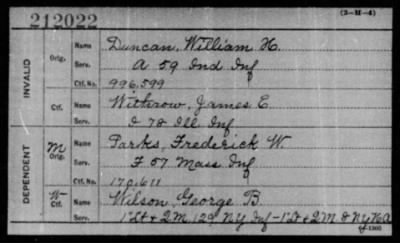 212022 (3—H—4)
INVALID
Orig. Name Duncan, William H.
Serv. A 59 Ind Inf
Ctf. No. 996,599
Ctf. Name Withrow, James E.
Serv. I 78 Ill Inf
DEPENDENT
M Orig. Name Parks, Frederick W.
Serv. F 57 Mass Inf
Ctf. No. 170,611
W Ctf. Name Wilson, George B.
Serv. 1 Lt & 2 M. 129 NY Inf — 1 Lt & 2 M. 8 N.Y.H.A.